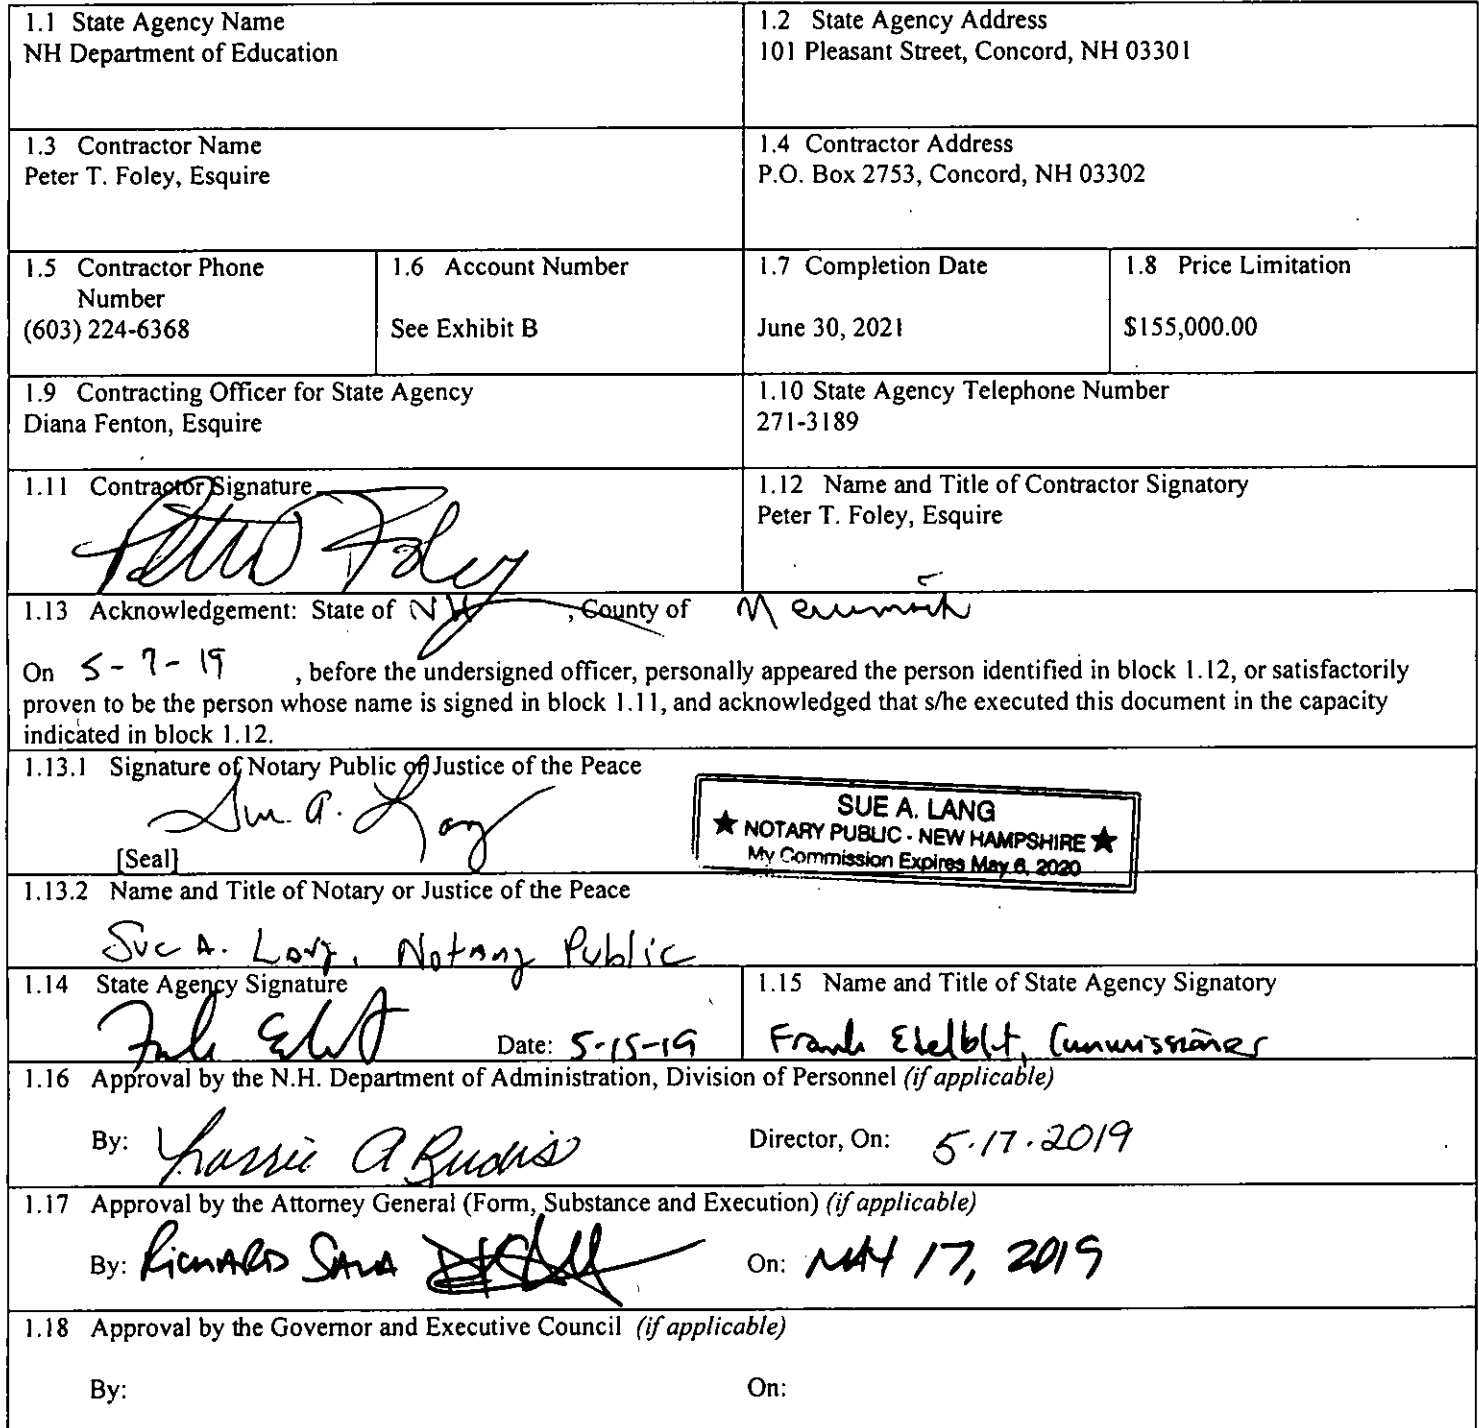 1.1 State Agency Name
NH Department of Education
1.2 State Agency Address
101 Pleasant Street, Concord, NH 03301
1.3 Contractor Name
Peter T. Foley, Esquire
1.4 Contractor Address
P.O. Box 2753, Concord, NH 03302
1.5 Contractor Phone
Number
(603) 224-6368
1.6 Account Number
See Exhibit B
1.7 Completion Date
June 30, 2021
1.8 Price Limitation
$155,000.00
1.9 Contracting Officer for State Agency
Diana Fenton, Esquire
1.10 State Agency Telephone Number
271-3189
1.11 Contractor Signature
Peter Foley
1.12 Name and Title of Contractor Signatory
Peter T. Foley, Esquire
1.13 Acknowledgement: State of NH, County of Merrimack
On 5-7-19, before the undersigned officer, personally appeared the person identified in block 1.12, or satisfactorily
proven to be the person whose name is signed in block 1.11, and acknowledged that s/he executed this document in the capacity
indicated in block 1.12.
1.13.1 Signature of Notary Public or Justice of the Peace
Sue A. Lang
[Seal]
SUE A. LANG
★ NOTARY PUBLIC - NEW HAMPSHIRE ★
My Commission Expires May 6, 2020
1.13.2 Name and Title of Notary or Justice of the Peace
Sue A. Lang, Notary Public
1.14 State Agency Signature
Date: 5-15-19
1.15 Name and Title of State Agency Signatory
Frank Edelblut, Commissioner
1.16 Approval by the N.H. Department of Administration, Division of Personnel (if applicable)
By: A Rudis
Director, On: 5.17.2019
1.17 Approval by the Attorney General (Form, Substance and Execution) (if applicable)
By: RICHARD SALA
On: MAY 17, 2019
1.18 Approval by the Governor and Executive Council (if applicable)
By:
On: